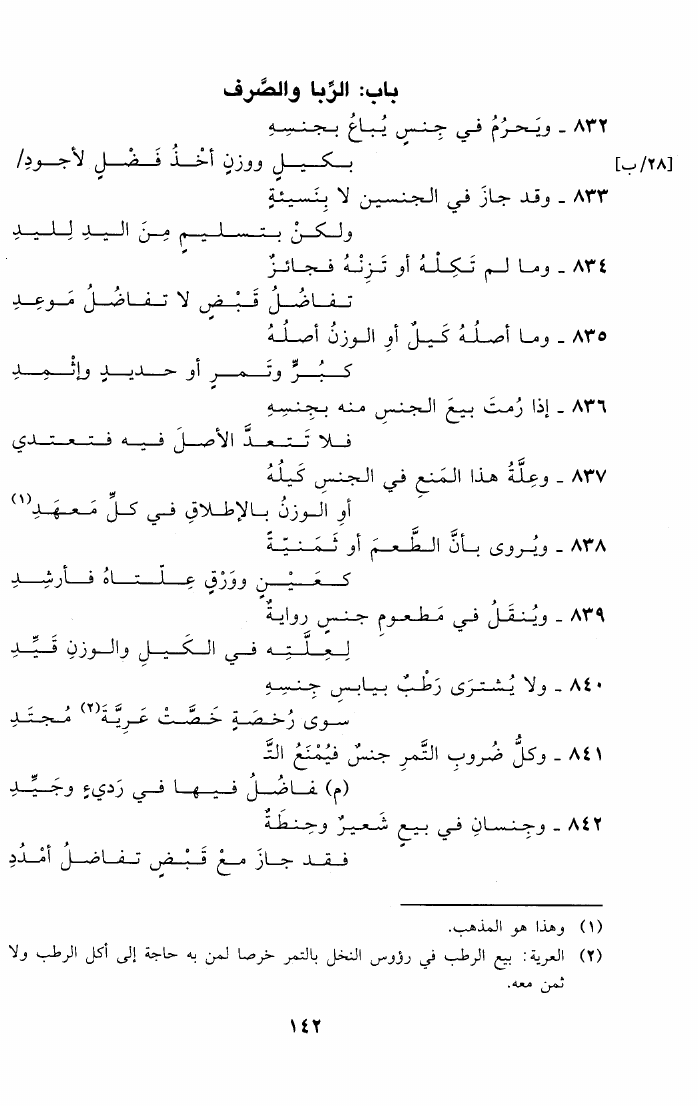 باب: الرِّبا والصَّرف
٨٣٢ ـ ويَحرُمُ في جِنسٍ يُباعُ بجنسِهِ
[٢٨/ب] بكيلٍ ووزنٍ أخْذُ فَضْلٍ لأجودِ/
٨٣٣ ـ وقد جازَ في الجنسين لا بِنَسيئةٍ
ولكنْ بتسليمٍ مِنَ اليدِ لِليدِ
٨٣٤ ـ وما لم تَكِلْهُ أو تَزِنْهُ فجائزٌ
تفاضُلُ قَبْضٍ لا تفاضُلُ مَوعِدِ
٨٣٥ ـ وما أصلُهُ كَيلٌ أوِ الوزنُ أصلُهُ
كبُرٍّ وتَمرٍ أو حديدٍ وإثْمِدِ
٨٣٦ ـ إذا رُمتَ بيعَ الجنسِ منه بجِنسِهِ
فلا تَتعدَّ الأصلَ فيه فتعتدي
٨٣٧ ـ وعِلَّةُ هذا المَنعِ في الجنسِ كَيلُهُ
أوِ الوزنُ بالإطلاقِ في كلِّ مَعهَدِ(١)
٨٣٨ ـ ويُروى بأنَّ الطَّعمَ أو ثَمَنيّةً
كعَيْنٍ ووَرْقٍ عِلّتاهُ فأرشِدِ
٨٣٩ ـ ويُنقَلُ في مَطعومِ جنسٍ روايةٌ
لِعِلَّتِه في الكَيلِ والوزنِ قَيِّدِ
٨٤٠ ـ ولا يُشترَى رَطْبٌ بيابسِ جِنسِهِ
سوى رُخصَةٍ خَصَّتْ عَرِيَّةَ(٢) مُجتَدِ
٨٤١ ـ وكلُّ ضُروبِ التَّمرِ جنسٌ فيُمْنَعُ التَّـ
(م) ـفاضُلُ فيها في رَديءٍ وجَيِّدِ
٨٤٢ ـ وجِنسانِ في بيعٍ شَعيرٌ وحِنطَةٌ
فقد جازَ معْ قَبْضٍ تفاضلُ أمْدُدِ
(١) وهذا هو المذهب.
(٢) العرية: بيع الرطب في رؤوس النخل بالتمر خرصا لمن به حاجة إلى أكل الرطب ولا
ثمن معه.
١٤٢